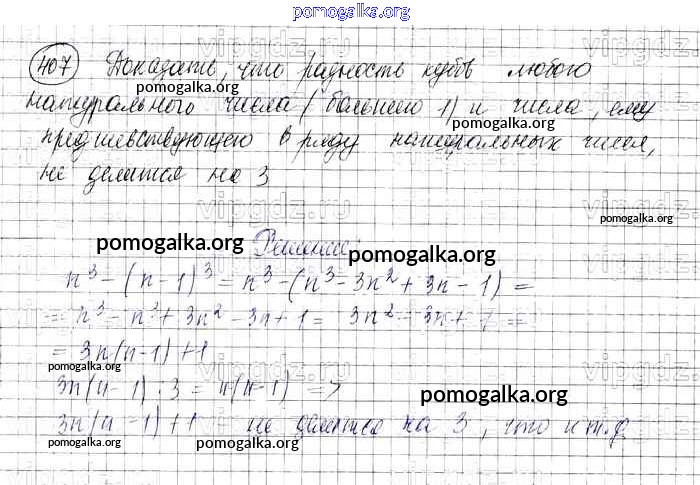 pomogalka.org
407 Доказать, что разность кубов любого
натурального числа (большего 1) и числа, ему
pomogalka.org
предшествующего в ряду натуральных чисел,
не делится на 3
vipgdz.ru
pomogalka.org
Решение:
pomogalka.org
pomogalka.org
n³ - (n-1)³ = n³ - (n³ - 3n² + 3n - 1) =
= n³ - n³ + 3n² - 3n + 1 = 3n² - 3n + 1 =
= 3n(n-1) + 1
pomogalka.org
3n(n-1) : 3 = n(n-1) =>
pomogalka.org
3n(n-1) + 1 не делится на 3, что и т.д.
pomogalka.org
pomogalka.org